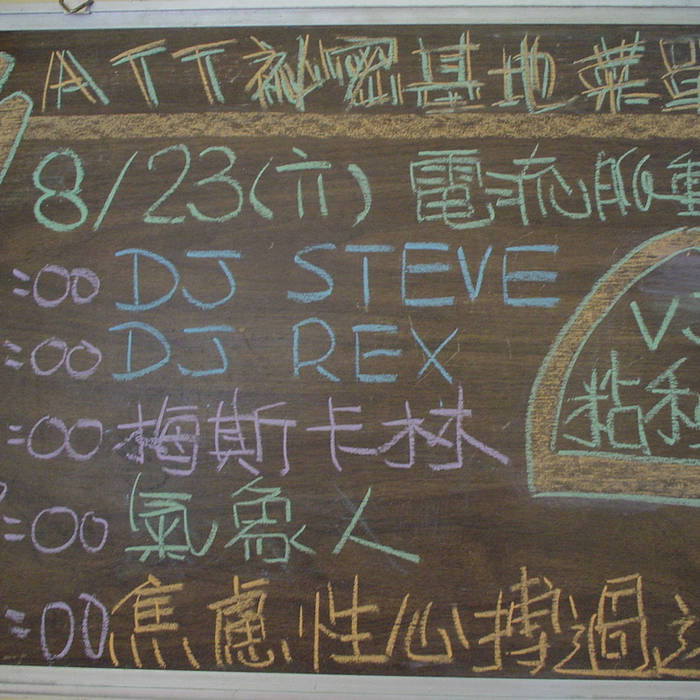 ATT祕密基地菜
8/23(六) 電流脈動
:00 DJ STEVE
:00 DJ REX
VJ
粘
:00 梅斯卡林
:00 氣象人
:00 焦慮性心搏過